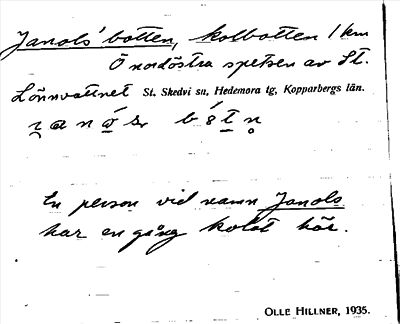 Janols' botten, kolbotten 1 km
Ö nordöstra spetsen av St.
Lönnvattnet St. Skedvi sn, Hedemora tg, Kopparbergs län.
En person vid namn Janols
har en gång kolat här.
OLLE HILLNER, 1935.